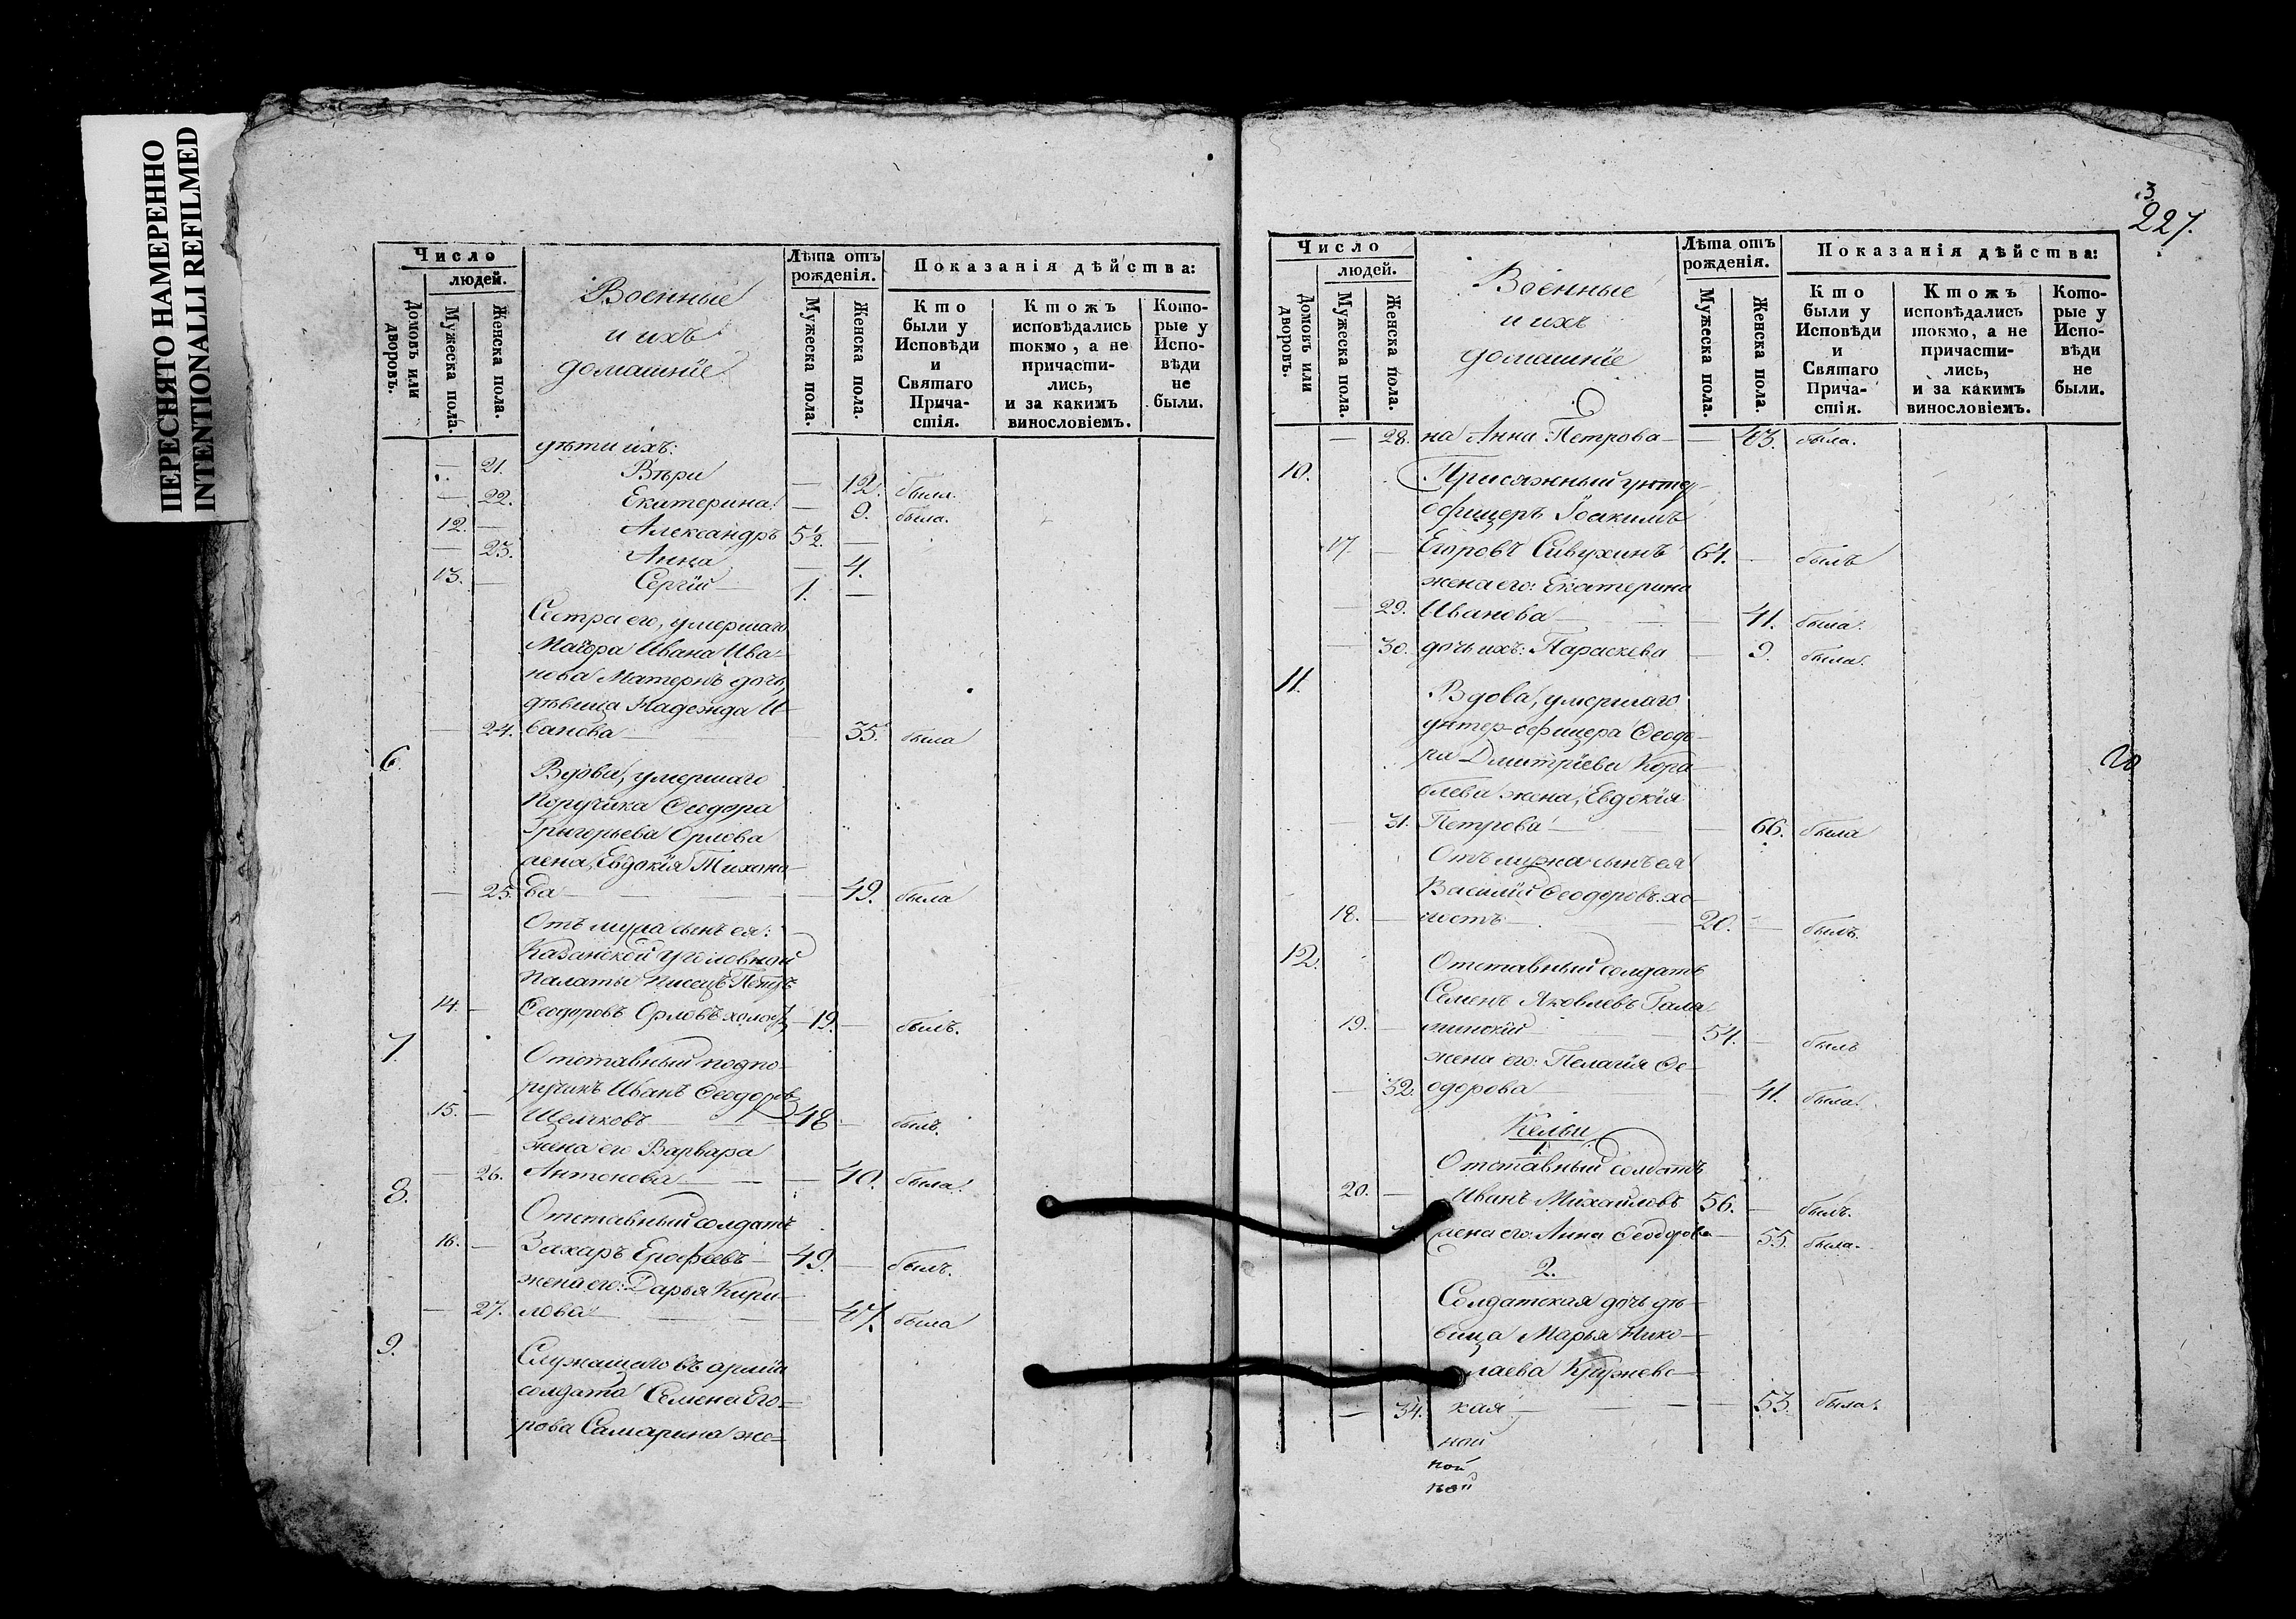 ПЕРЕСНЯТО НАМЕРЕННО
INTENTIONALLI REFILMED
Число
людей.
Домовъ или дворовъ.
Мужеска пола.
Женска пола.
Военные
и ихъ
домашніе
Лѣта отъ рожденія.
Мужеска пола.
Женска пола.
Показанія дѣйства:
Кто были у Исповѣди и Святаго Прича-стія.
Ктожъ исповѣдались токмо, а не причасти-лись, и за какимъ винословіемъ.
Кото-рые у Испо-вѣди не были.
дѣти ихъ:
— 21. Вѣра — 12. была.
— 22. Екатерина — 9. была.
12. — Александръ 5½. —
— 23. Анна — 4.
13. — Сергій — 1. —
Сестра его, умершаго
Маіора Ивана Ива-
нова дочь,
дѣвица Надежда И-
— 24. ванова — — 35. была
6. Вдова, умершаго
Поручика Ѳеодора
Григорьева Орлова
жена, Евдокія Тихоно-
— 25. ва — — 49. была
Отъ мужа сынъ ея:
Казанской уголовной
палаты писецъ Петръ
14. — Ѳеодоровъ Орловъ холос. 19. — былъ.
7. Отставный подпо-
ручикъ Иванъ Ѳеодоров
15. — 48 — былъ.
жена его Варвара
— 26. Антонова — — 40. была.
8. Отставный солдатъ
16. — Захаръ Ерофеевъ — 49. — былъ.
жена его: Дарья Кири-
— 27. лова — — 47. была
9. Служащаго въ арміи
солдата Семена Его-
рова Самарина же-
3
227.
Число
людей.
Домовъ или дворовъ.
Мужеска пола.
Женска пола.
Военные
и ихъ
домашніе
Лѣта отъ рожденія.
Мужеска пола.
Женска пола.
Показанія дѣйства:
Кто были у Исповѣди и Святаго Прича-стія.
Ктожъ исповѣдались токмо, а не причасти-лись, и за какимъ винословіемъ.
Кото-рые у Испо-вѣди не были.
— 28. на Анна Петрова — — была.
10. Присяжный унтер-
офицеръ Іоакимъ
17. — Егоровъ Сивухинъ 64. — былъ
жена его: Екатерина
— 29. Иванова — — 41. была.
— 30. дочь ихъ: Параскева — 9. была.
11. Вдова, умершаго
унтер-офицера Ѳеодо-
ра Дмитріева Кора-
блева жена, Евдокія
— 31. Петрова — — 66. была
Отъ мужа сынъ ея
Василій Ѳеодоровъ хо-
18. — лостъ — 20. — былъ.
12. Отставный солдатъ
Семенъ Яковлевъ
19. — 54. — былъ
жена его: Пелагія Ѳе-
— 32. одорова — — 41. была.
Кельи
1.
Отставный солдатъ
20. — Иванъ Михайловъ 56. — былъ.
жена его: Анна Ѳеодорова — 55. была.
2.
Солдатская дочь дѣ-
вица Марья Нико-
лаева Кружевс-
— 34. кая — — 53. была.
ной
ной
ной